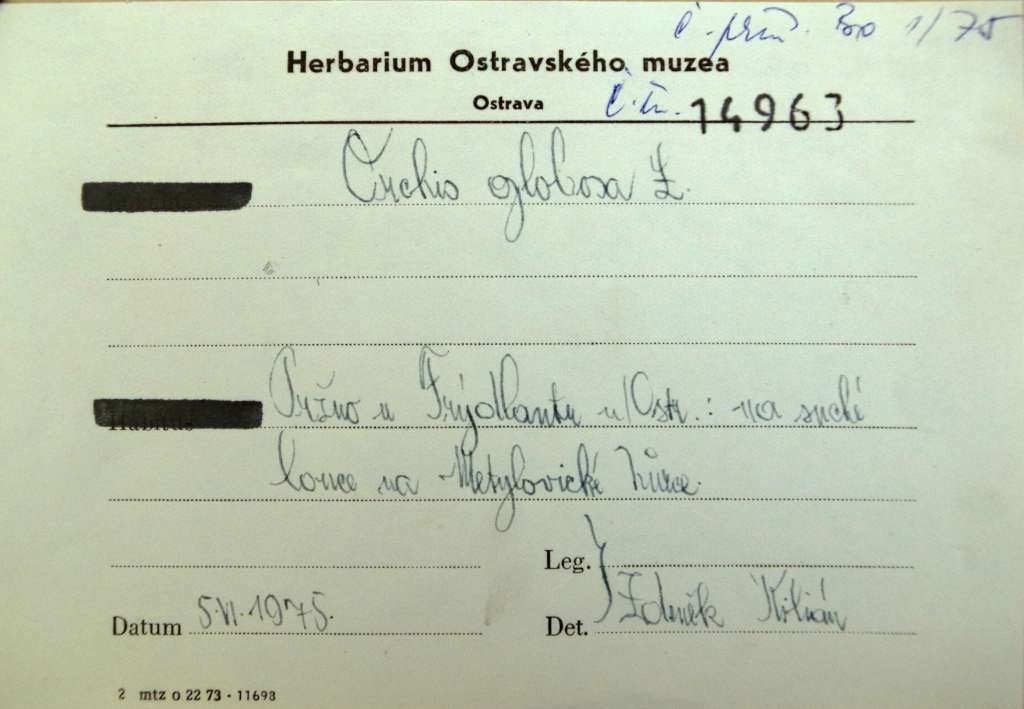 č. přír. Bo 1/75
Herbarium Ostravského muzea
Ostrava č. i. 14963
Orchis globosa L.
Pržno u Frýdlantu n/Ostr.: na suché
Habitus
louce na Metylovické hůrce.
Leg.
Datum 5.VI.1975. Det. Zdeněk Kilián
2 mtz o 22 73 - 11698